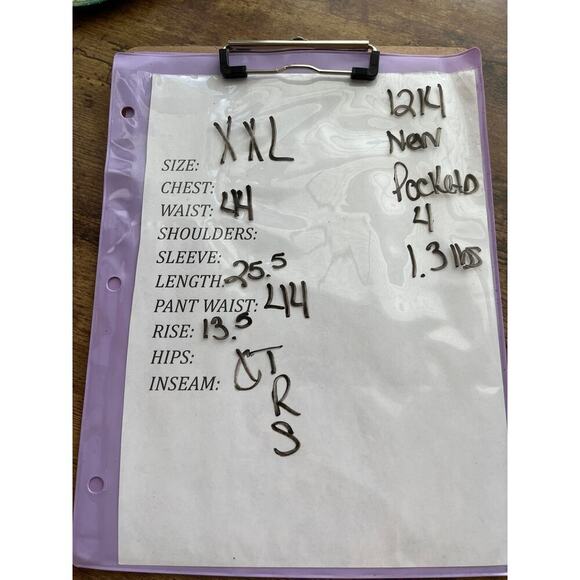 1214
New
SIZE: XXL
CHEST:
Pockets
WAIST: 44
4
SHOULDERS:
SLEEVE:
1.3 lbs
LENGTH: 25.5
PANT WAIST: 44
RISE: 13.5
HIPS:
T
INSEAM:
R
S